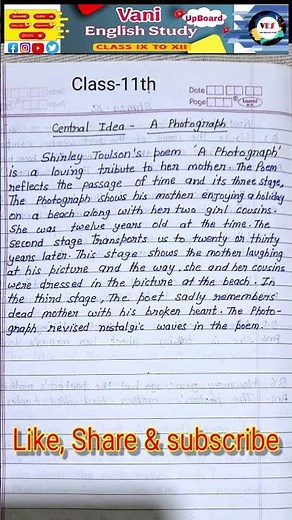 Vani
English Study
UpBoard
CLASS IX TO XII
VES
Class-11th
Date
Page
Central Idea - A Photograph
Shinley Toulson's poem 'A Photograph'
is a loving tribute to her mother. The Poem
reflects the passage of time and its three stage,
The Photograph shows his mother enjoying a holiday
on a beach along with her two girl cousins.
She was twelve years old at the time. The
second stage transports us to twenty or thirty
years later. This stage shows the mother laughing
at his picture and the way. she and her cousins
were dressed in the picture at the beach. In
the third stage, The poet sadly remembers
dead mother with his broken heart. The Photo-
graph revised nostalgic waves in the poem.
Like, Share & subscribe